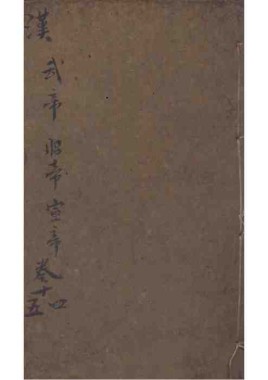 漢武帝昭帝宣帝卷十五